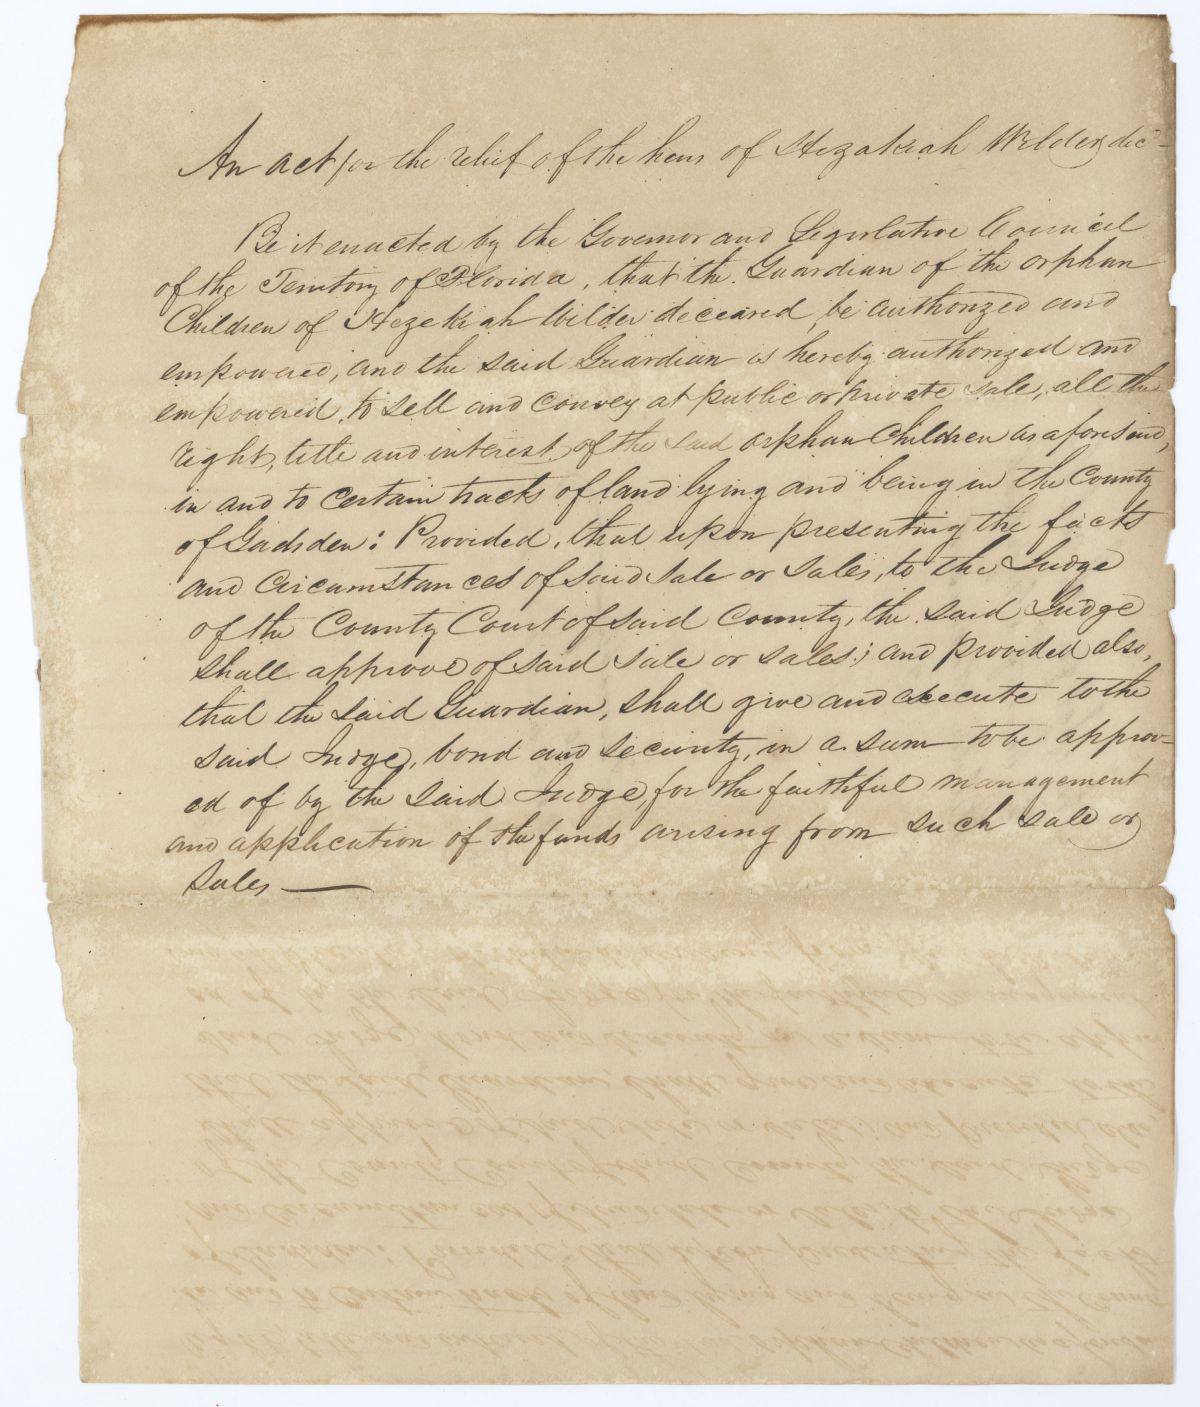 An act for the relief of the heirs of Hezakiah Wilder, dec-
Be it enacted by the Governor and Legislative Council
of the Territory of Florida, that the Guardian of the orphan
Children of Hezekiah Wilder deceased, be authorized and
empowered, and the said Guardian is hereby authorized and
empowered, to sell and convey at public or private sale, all the
right, title and interest, of the said orphan Children as aforesaid,
in and to certain tracts of land lying and being in the County
of Gadsden: Provided, that upon presenting the facts
and Circumstances of said sale or sales, to the Judge
of the County Court of said County, the said Judge
shall approve of said sale or sales; and provided also,
that the said Guardian, shall give and execute to the
said Judge, bond and security, in a sum to be approv-
ed of by the said Judge, for the faithful management
and application of the funds arising from such sale or
Sales —